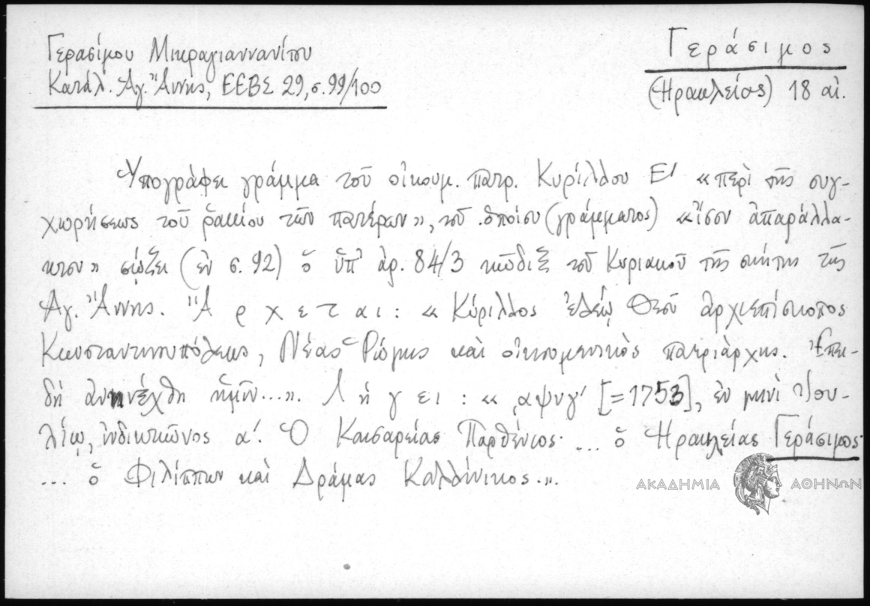 Γερασίμου Μικραγιαννανίτου
Κατάλ. Ἁγ. Ἄννης, ΕΕΒΣ 29, σ. 99/100
Γεράσιμος
(Ἡρακλείας) 18 αἰ.
Ὑπογράφει γράμμα τοῦ οἰκουμ. πατρ. Κυρίλλου Ε' «περὶ τῆς συγ-
χωρήσεως τοῦ ῥακίου τῶν πατέρων», τοῦ ὁποίου (γράμματος) «ἴσον ἀπαράλλα-
κτον» σῴζει (ἐν σ. 92) ὁ ὑπ' ἀρ. 84/3 κῶδιξ τοῦ Κυριακοῦ τῆς σκήτης τῆς
Ἁγ. Ἄννης. Ἄρχεται: «Κύριλλος ἐλέῳ Θεοῦ ἀρχιεπίσκοπος
Κωνσταντινουπόλεως, Νέας Ῥώμης καὶ οἰκουμενικὸς πατριάρχης. Ἐπει-
δὴ ἀνηνέχθη ἡμῖν...». Λήγει: «͵αψνγ' [=1753], ἐν μηνὶ Ἰου-
λίῳ, ἰνδικτιῶνος α'. Ὁ Καισαρείας Παρθένιος· ... ὁ Ἡρακλείας Γεράσιμος·
... ὁ Φιλίππων καὶ Δράμας Καλλίνικος.».
ΑΚΑΔΗΜΙΑ ΑΘΗΝΩΝ